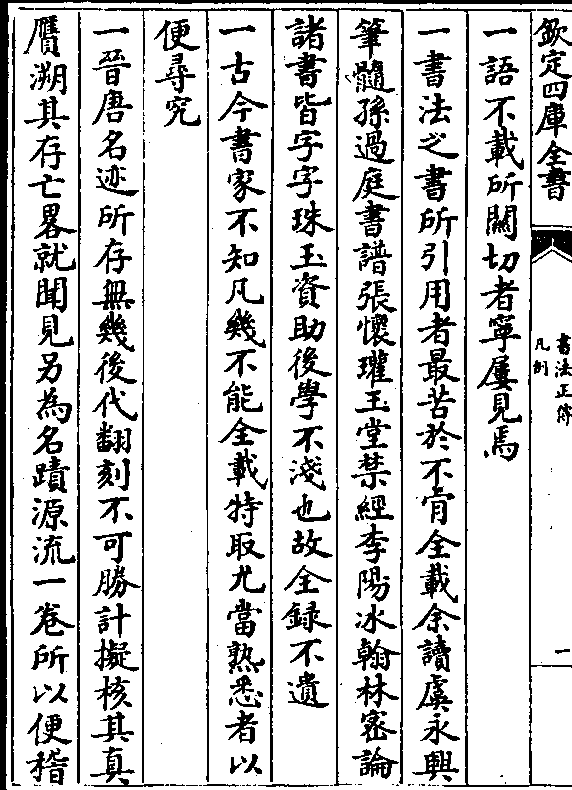 欽定四庫全書
書法正傳
凡例
一
一語不載所關切者寧屢見焉
一書法之書所引用者最苦於不肯全載余讀虞永興
筆髓孫過庭書譜張懷瓘玉堂禁經李陽冰翰林密論
諸書皆字字珠玉資助後學不淺也故全錄不遺
一古今書家不知凡幾不能全載特取尤當熟悉者以
便尋究
一晉唐名迹所存無幾後代翻刻不可勝計擬核其真
贋溯其存亡畧就聞見另為名蹟源流一卷所以便稽